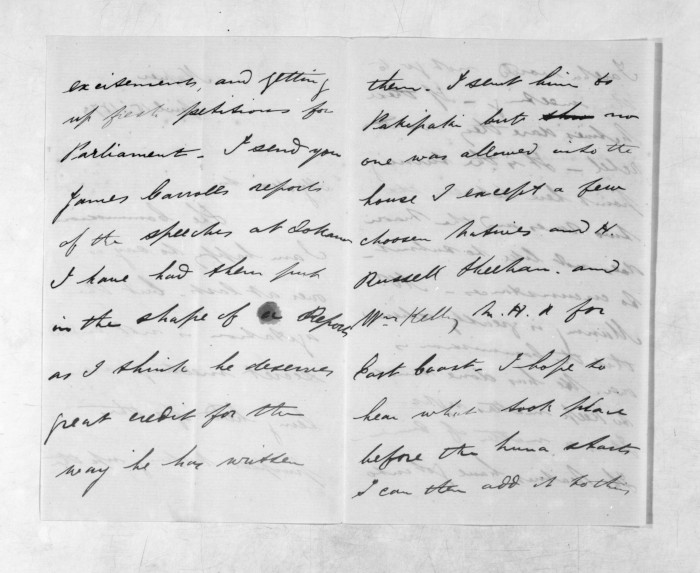 excitements, and getting
up petitions for
Parliament. I send you
James Carrolls reports
of the speeches at
I have had them put
in the shape of a Report
as I think he deserves
great credit for the
way he has written
them. I sent him to
Pakipaki but no
one was allowed into the
house I except a few
choosen natives and H.
Russell Sheehan. and
Wm Kelly M. H. R for
East Coast. I hope to
hear what took place
before the huna starts
I can then add it to this